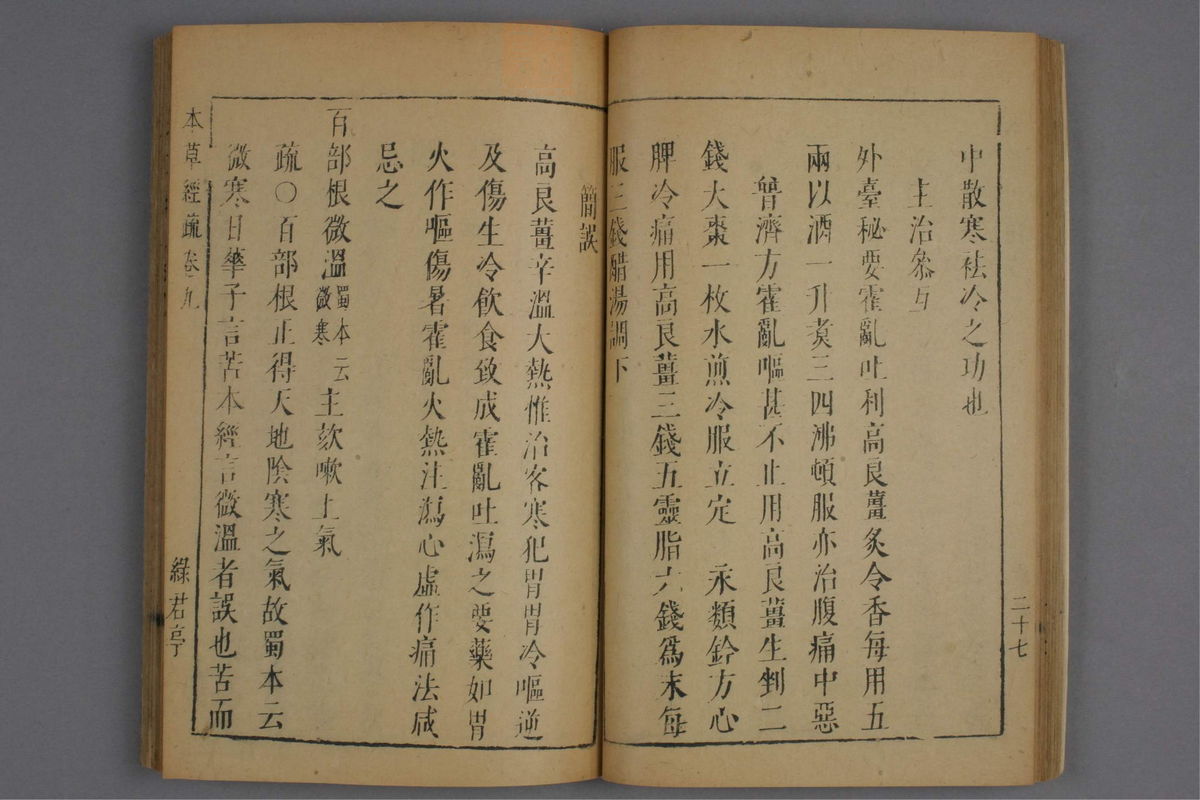 中散寒祛冷之功也
主治參互
外臺秘要霍亂吐利高良薑炙令香每用五
兩以酒一升煮三四沸頓服亦治腹痛中惡
普濟方霍亂嘔甚不止用高良薑生剉二
錢大棗一枚水煎冷服立定　永類鈐方心
脾冷痛用高良薑三錢五靈脂六錢爲末每
服三錢醋湯調下
二十七
簡誤
高良薑辛溫大熱惟治客寒犯胃胃冷嘔逆
及傷生冷飲食致成霍亂吐瀉之要藥如胃
火作嘔傷暑霍亂火熱注瀉心虛作痛法咸
忌之
百部根微溫蜀本云微寒主欬嗽上氣
疏〇百部根正得天地陰寒之氣故蜀本云
微寒日華子言苦本經言微溫者誤也苦而
本草經疏卷九
綠君亭